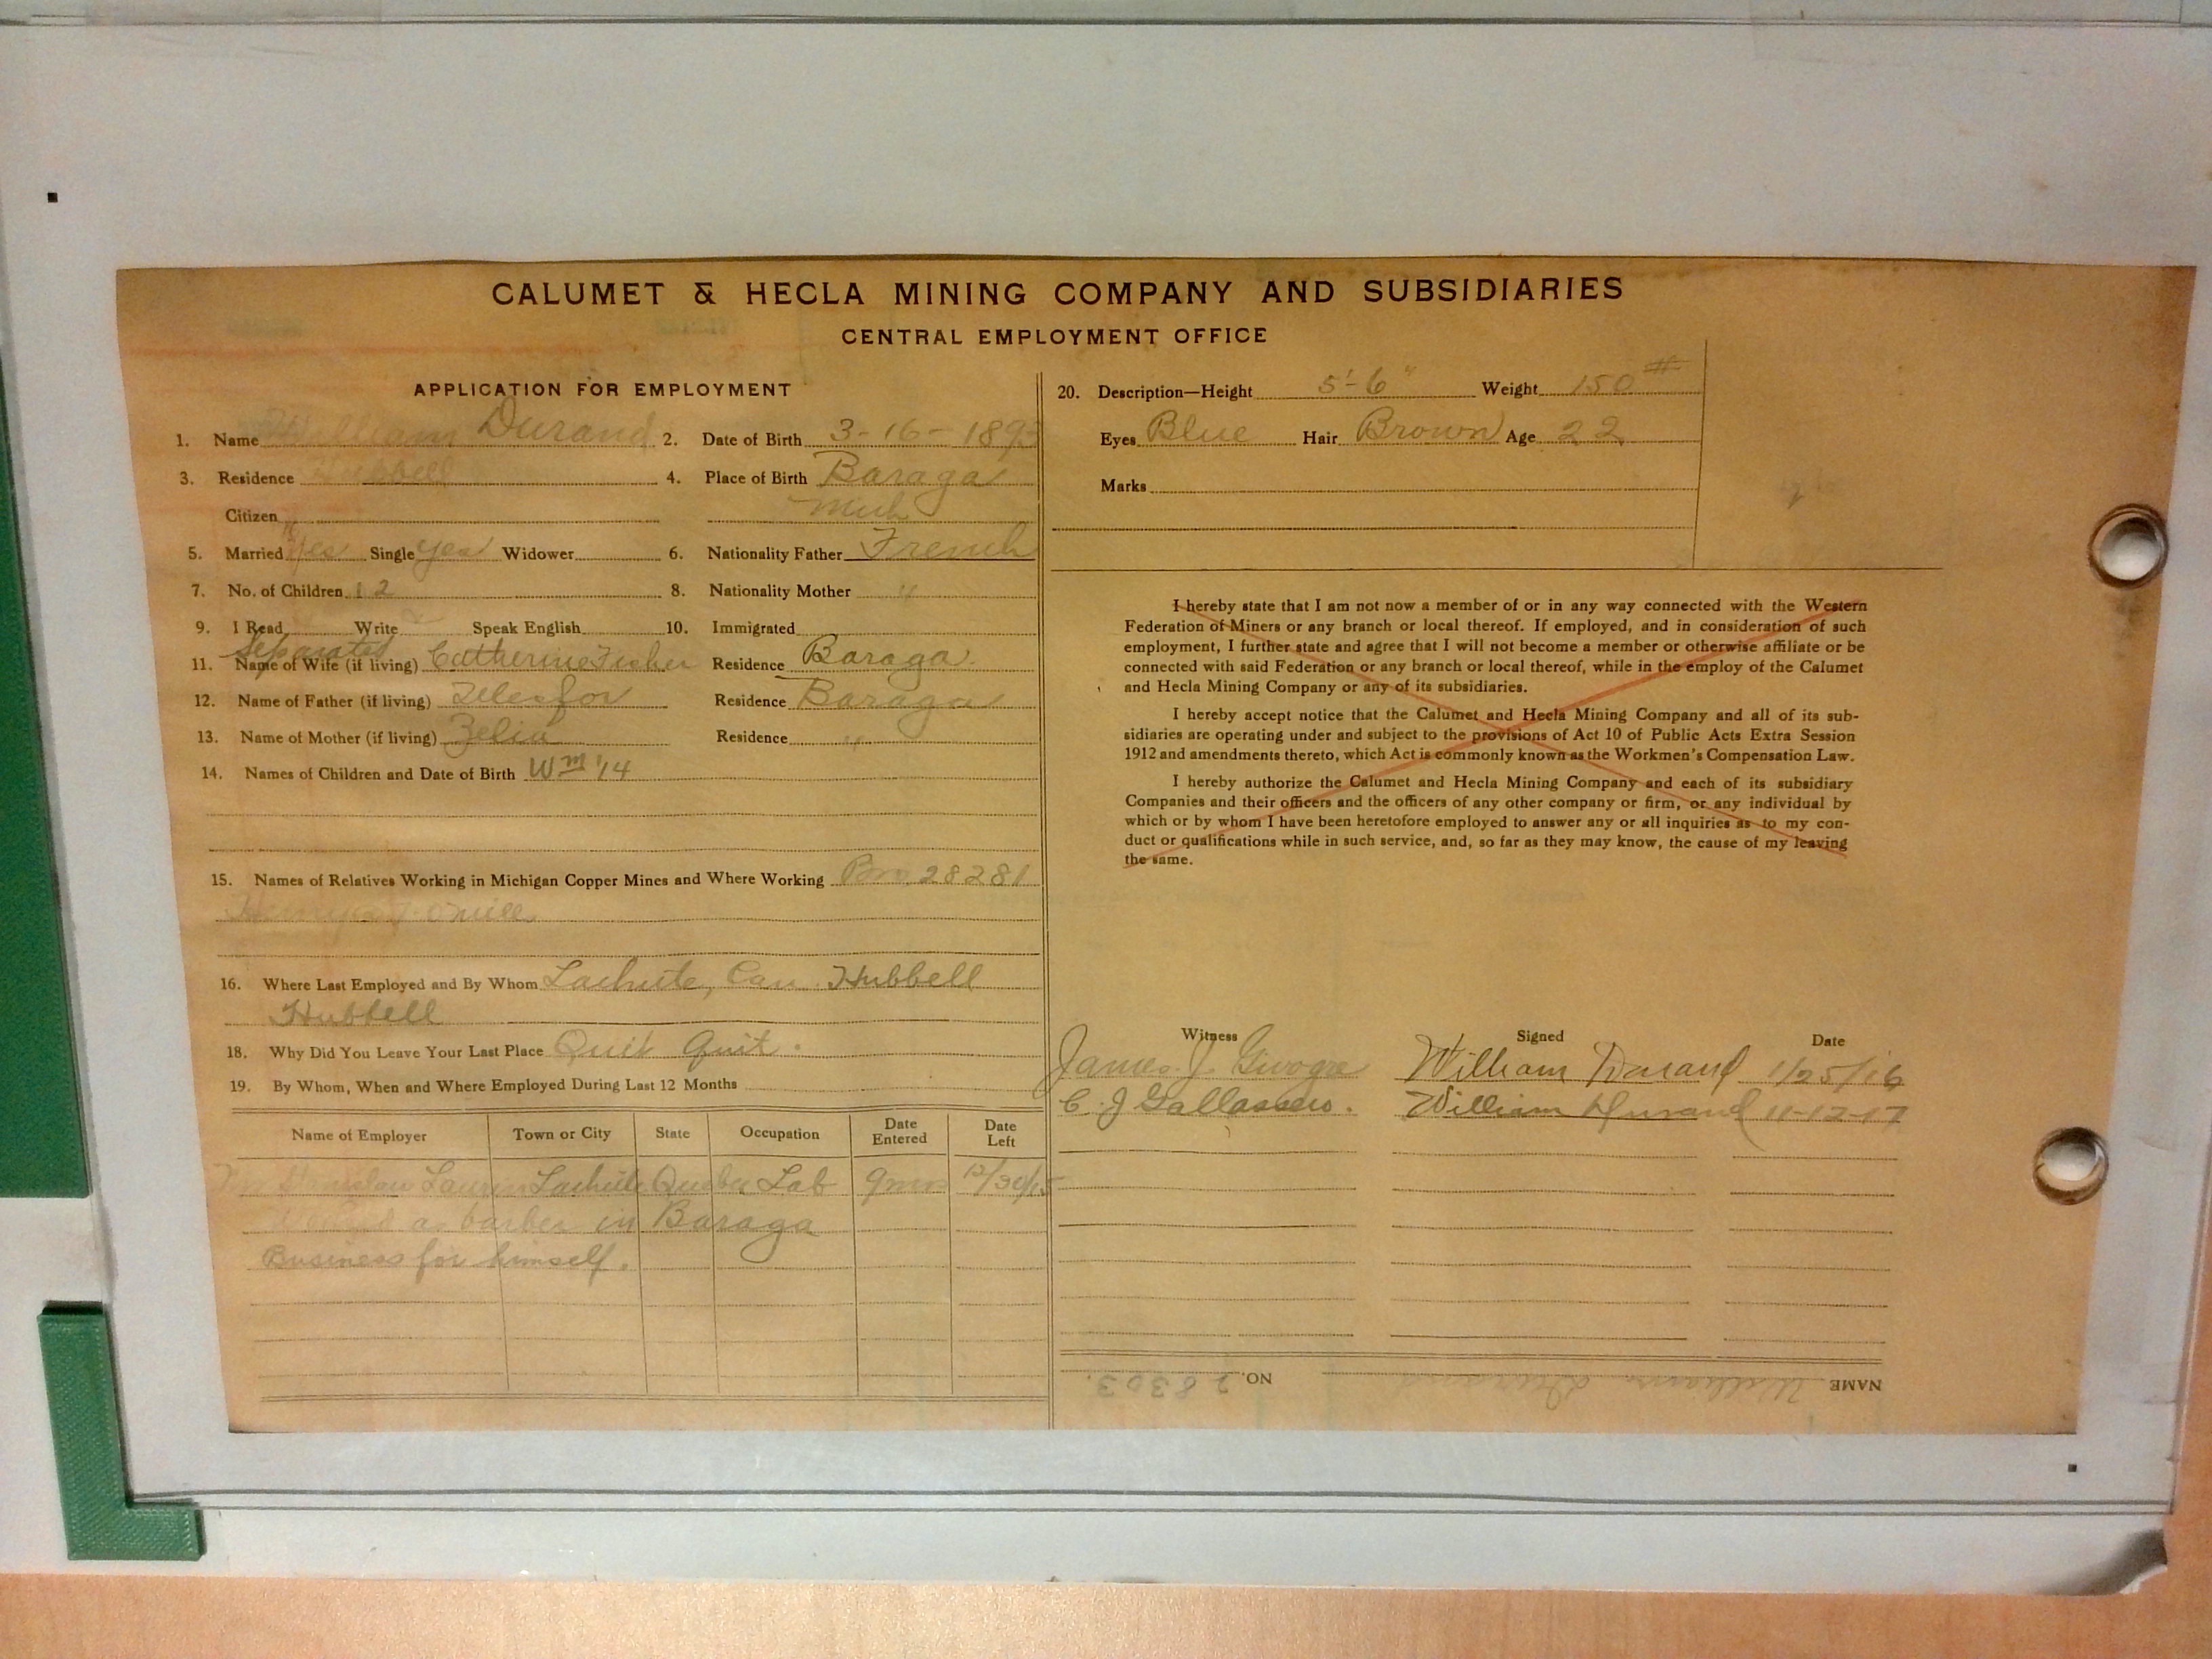 CALUMET & HECLA MINING COMPANY AND SUBSIDIARIES
CENTRAL EMPLOYMENT OFFICE
APPLICATION FOR EMPLOYMENT
1. Name William Durand 2. Date of Birth 3-16-1893
3. Residence Hubbell 4. Place of Birth Baraga
Citizen Mich
5. Married Yes Single yes Widower 6. Nationality Father French
7. No. of Children 1 2 8. Nationality Mother "
9. I Read Write Speak English 10. Immigrated
Separated
11. Name of Wife (if living) Catherine Fisher Residence Baraga
12. Name of Father (if living) Telesfor Residence Baraga
13. Name of Mother (if living) Zelia Residence "
14. Names of Children and Date of Birth Wm '14
15. Names of Relatives Working in Michigan Copper Mines and Where Working Bro 28281
Henry
16. Where Last Employed and By Whom Lachute, Can. Hubbell
Hubbell
18. Why Did You Leave Your Last Place Quit Quit.
19. By Whom, When and Where Employed During Last 12 Months
Name of Employer Town or City State Occupation Date Entered Date Left
Lachute Quebec Lab 9 mos 12/30/15
Worked a barber in Baraga
Business for himself.
20. Description—Height 5'-6" Weight 150 #
Eyes Blue Hair Brown Age 22
Marks
I hereby state that I am not now a member of or in any way connected with the Western
Federation of Miners or any branch or local thereof. If employed, and in consideration of such
employment, I further state and agree that I will not become a member or otherwise affiliate or be
connected with said Federation or any branch or local thereof, while in the employ of the Calumet
and Hecla Mining Company or any of its subsidiaries.
I hereby accept notice that the Calumet and Hecla Mining Company and all of its sub-
sidiaries are operating under and subject to the provisions of Act 10 of Public Acts Extra Session
1912 and amendments thereto, which Act is commonly known as the Workmen's Compensation Law.
I hereby authorize the Calumet and Hecla Mining Company and each of its subsidiary
Companies and their officers and the officers of any other company or firm, or any individual by
which or by whom I have been heretofore employed to answer any or all inquiries as to my con-
duct or qualifications while in such service, and, so far as they may know, the cause of my leaving
the same.
Witness Signed Date
James J. William Durand 1/25/16
C. J. William Durand 11-12-17
NAME William Durand NO. 28303.